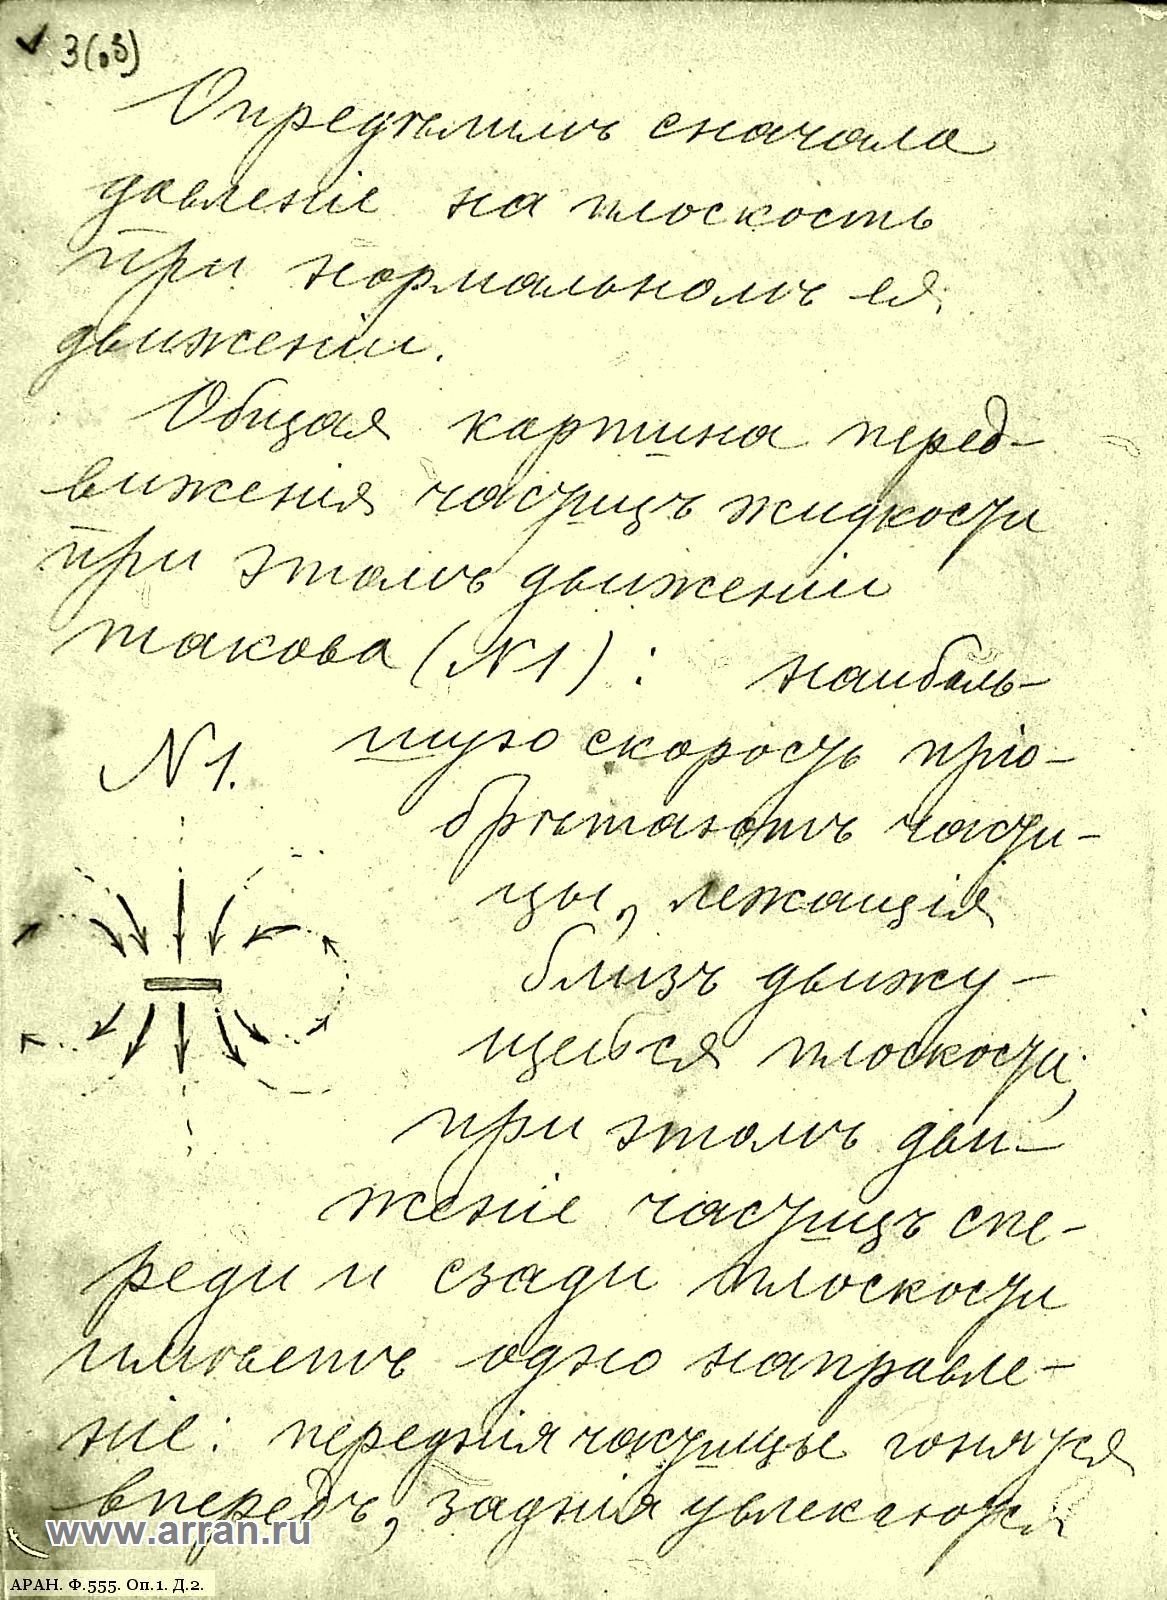 3(.3)
Опредѣлимъ сначала
давленіе на плоскость
при нормальномъ ея
движеніи.
Общая картина перед-
виженія частицъ жидкости
при этомъ движеніи
такова (N1): наиболь-
шую скорость прiо-
N1.
брѣтаютъ части-
цы, лежащія
близъ движу-
щейся плоскости;
при этомъ дви-
женіе частицъ спе-
реди и сзади плоскости
имѣетъ одно направле-
ніе: переднія частицы гонятся
впередъ, заднія увлекаются
www.arran.ru
АРАН. Ф.555. Оп.1. Д.2.